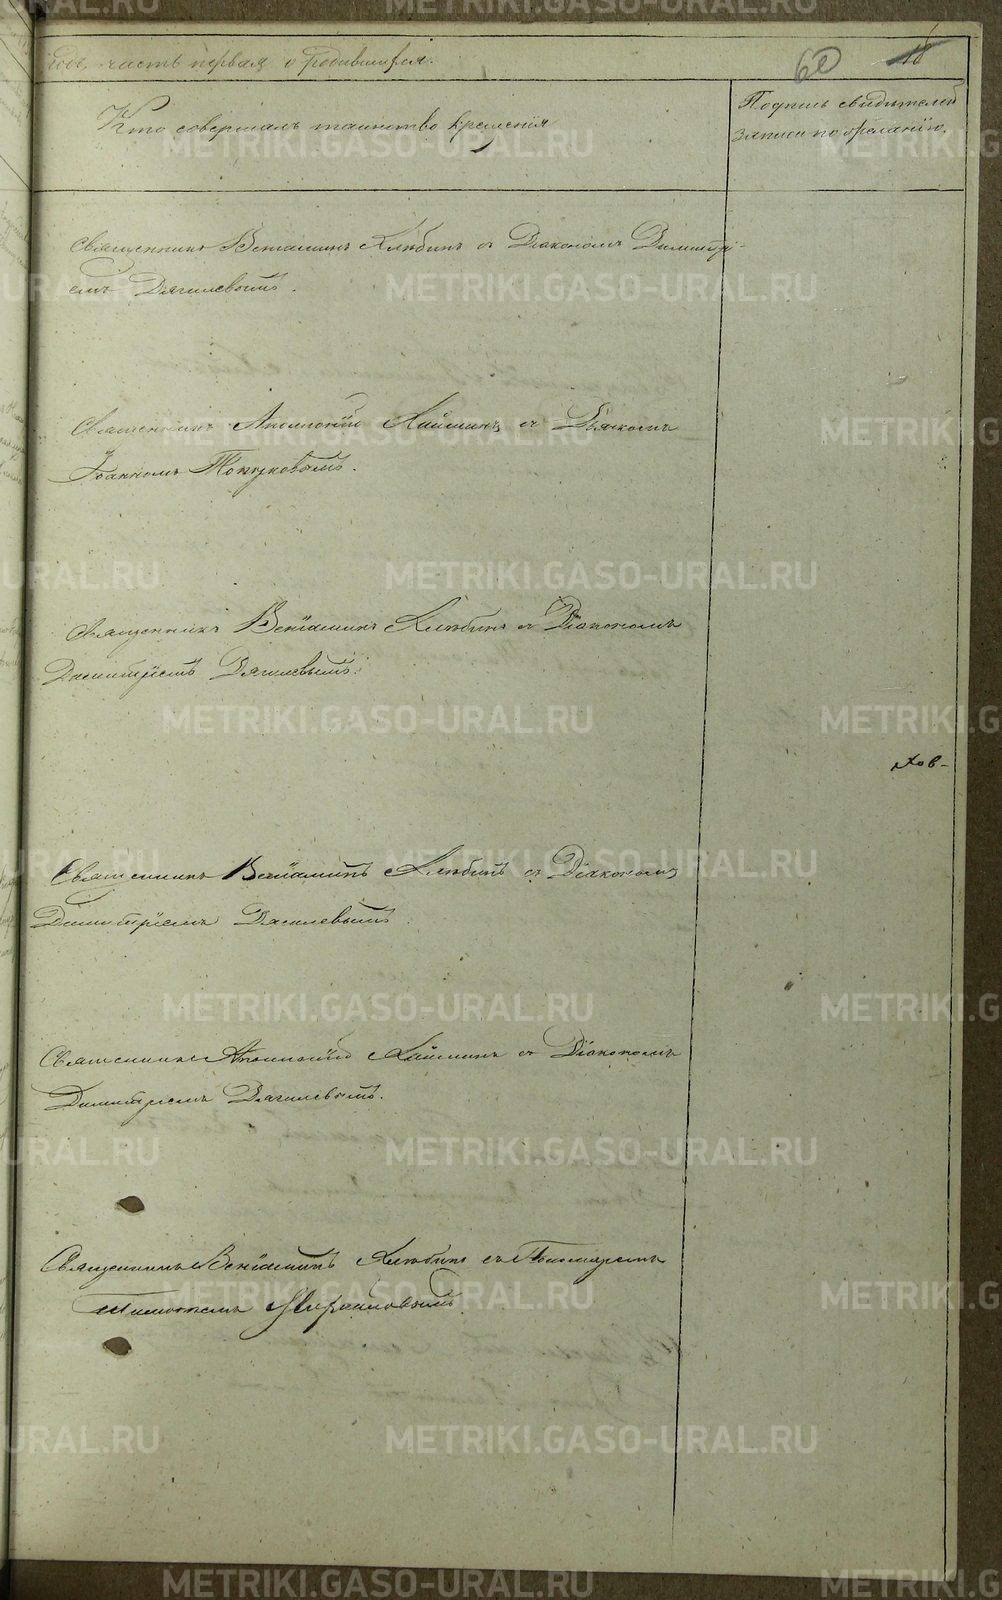 годъ, часть первая о родившихся.
60
16
Кто совершалъ таинство крещенія
Подпись свидѣтелей
записи по желанію.
Священникъ Веніаминъ Хлѣбинъ съ Діакономъ Димитрі-
емъ Дягилевымъ.
Священникъ Аполлоній съ Дьякомъ
Іоанномъ
Священникъ Веніаминъ Хлѣбинъ съ Діакономъ
Димитріемъ Дягилевымъ.
ков-
Священникъ Веніаминъ Хлѣбинъ съ Діакономъ
Димитріемъ Дягилевымъ.
Священникъ Аполлоній съ Діакономъ
Димитріемъ Дягилевымъ.
Священникъ Веніаминъ Хлѣбинъ съ Пономаремъ
METRIKI.GASO-URAL.RU